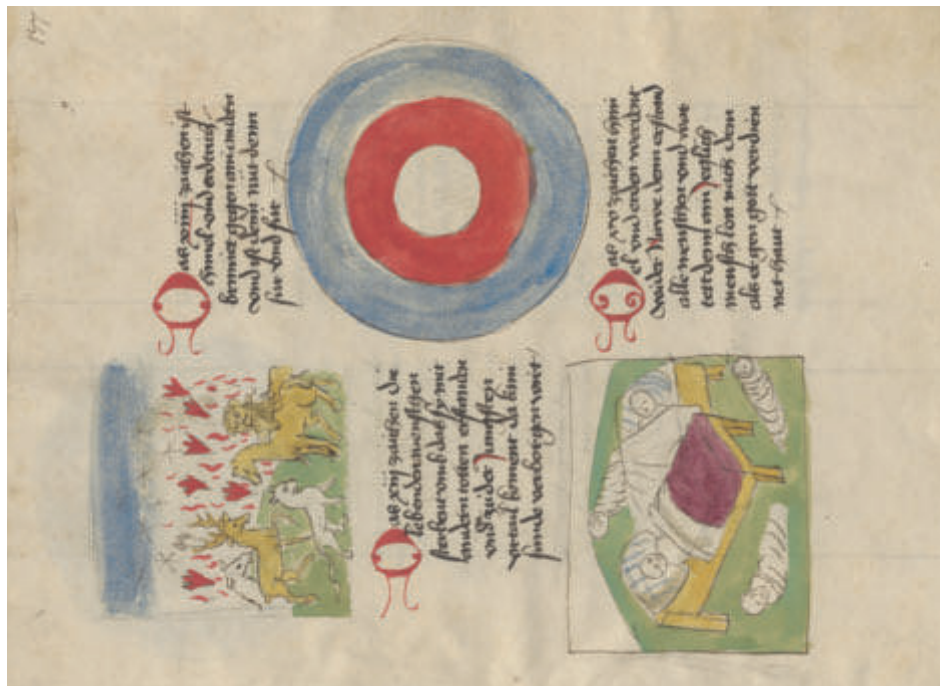 Das xiiij zaichen ist
himel und
brinnet gegen ain anden
und ist denn nüt denn
für und für
Das xiij zaichen die
lebenden menschen
sterbent umb das sy mit
andern totten erstanden
und zü der jungsten
urtail koment da kain
sünde verborgen wirt
Das xv zaichen himi
el und erden werdent
wider nüwe denn erstand
alle menschen und
tett denn ain yeglich
mensch lon nach dem
als er gen gott verdien
net haut